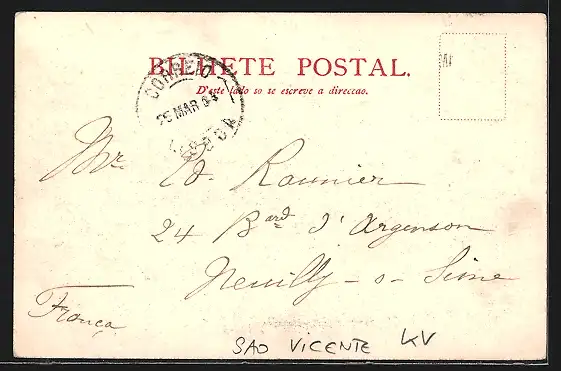 BILHETE POSTAL.
D'este lado so se escreve a direccao.
CORREIO
25 MAR 03
Mr. Ed. Raunier
24 Bard d'Argenson
Neuilly-s-Seine
França
SAO VICENTE KV